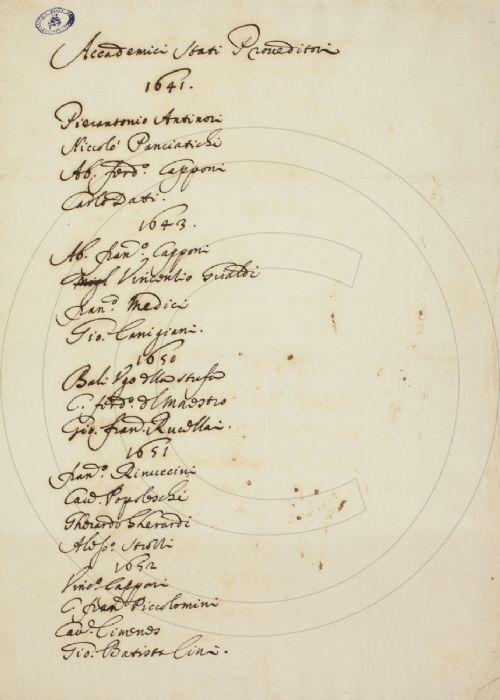 Accademici Stati Proveditori
1641.
Pierantonio Antinori
Niccolò Panciatichi
Ab. Ferd.º Capponi
Carlo Dati.
1643.
Ab. Fran.º Capponi
Vincentio Giraldi
Fran.º Medici
Gio. Canigiani.
1650
Balì Ugo della Stufa
C. Ferd.º del Maestro
Gio. Fran.º Rucellai.
1651
Fran.º Rinuccini
Cav. Popoleschi
Gherardo Gherardi
Aless.º Strozzi
1652
Vinc.º Capponi
C. Fran.º Piccolomini
Cav. Cimenes
Gio. Batista Cini.